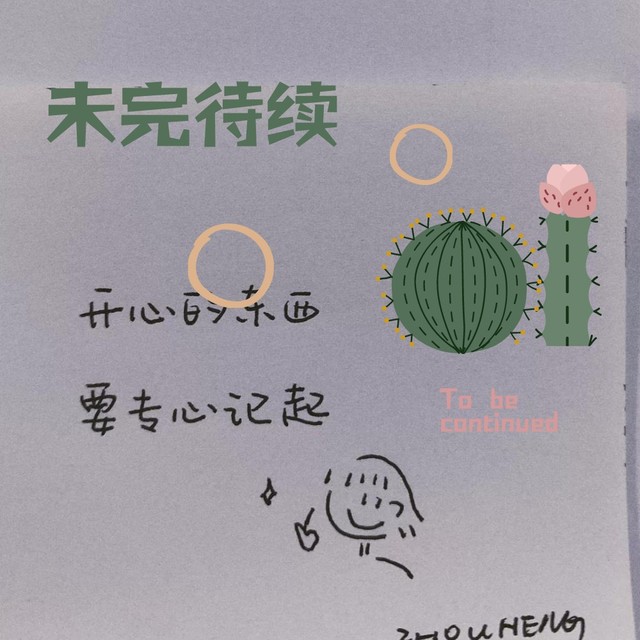 未完待续
开心的东西
要专心记起
To be
continued
ZHOU HENG